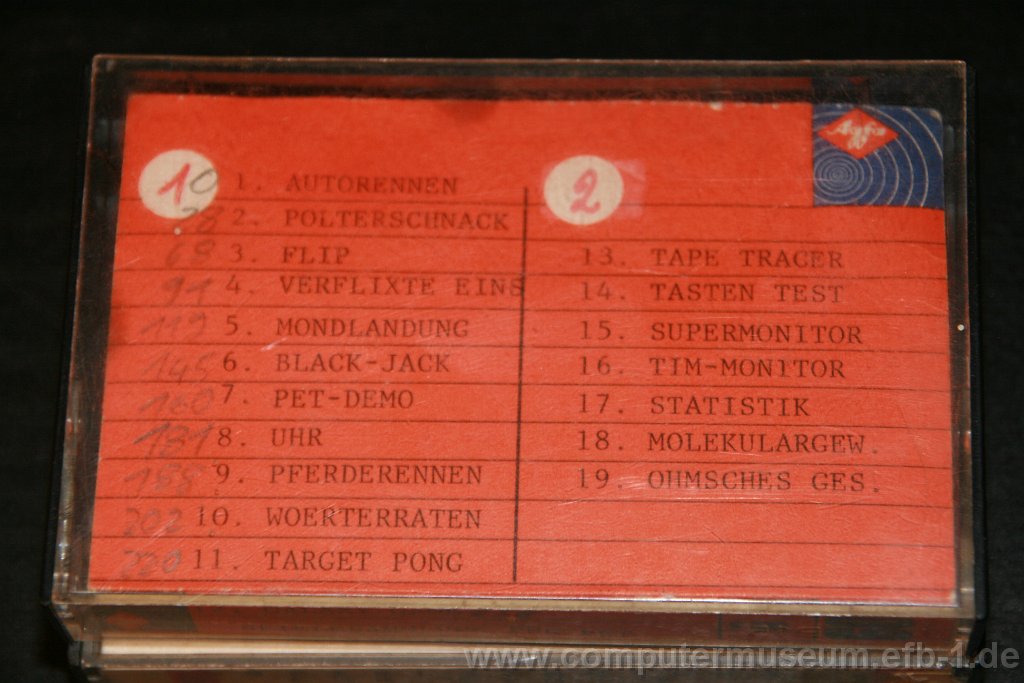 Agfa
1
0 1. AUTORENNEN
78 2. POLTERSCHNACK
68 3. FLIP
91 4. VERFLIXTE EINS
119 5. MONDLANDUNG
145 6. BLACK-JACK
160 7. PET-DEMO
181 8. UHR
185 9. PFERDERENNEN
202 10. WOERTERRATEN
220 11. TARGET PONG
2
13. TAPE TRACER
14. TASTEN TEST
15. SUPERMONITOR
16. TIM-MONITOR
17. STATISTIK
18. MOLEKULARGEW.
19. OHMSCHES GES.
www.computermuseum.efb-1.de